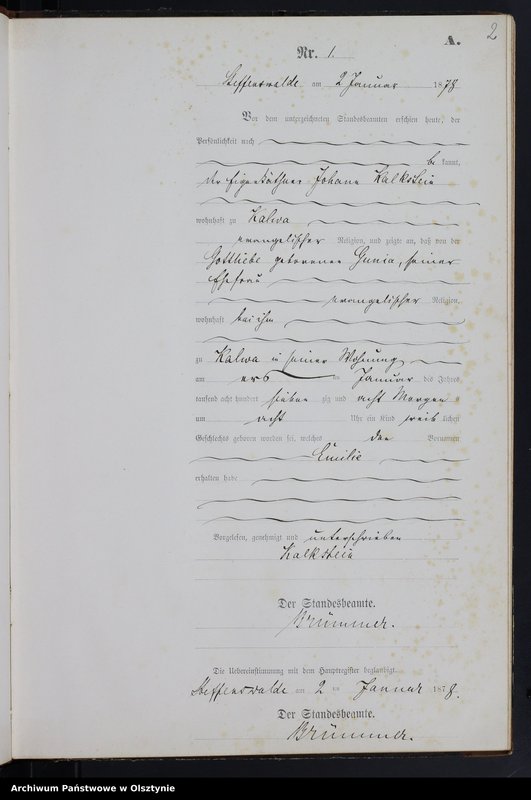 2
A.
Nr. 1.
Steffenswalde am 2 Januar 1878
Vor dem unterzeichneten Standesbeamten erschien heute, der
Persönlichkeit nach
be kannt,
der Eigenkäthner Johann Kalkstein
wohnhaft zu Kalwa
evangelischer Religion, und zeigte an, daß von der
Gottliebe geborenen Gunia, seiner
Ehefrau
evangelischer Religion,
wohnhaft bei ihm
zu Kalwa in seiner Wohnung
am ers ten Januar des Jahres
tausend acht hundert sieben zig und acht Morgens
um acht Uhr ein Kind weib lichen
Geschlechts geboren worden sei, welches den Vornamen
Emilie
erhalten habe
Vorgelesen, genehmigt und unterschrieben
Kalkstein
Der Standesbeamte.
Brümmer.
Die Uebereinstimmung mit dem Hauptregister beglaubigt.
Steffenswalde am 2 ten Januar 1878.
Der Standesbeamte.
Brümmer.
Archiwum Państwowe w Olsztynie